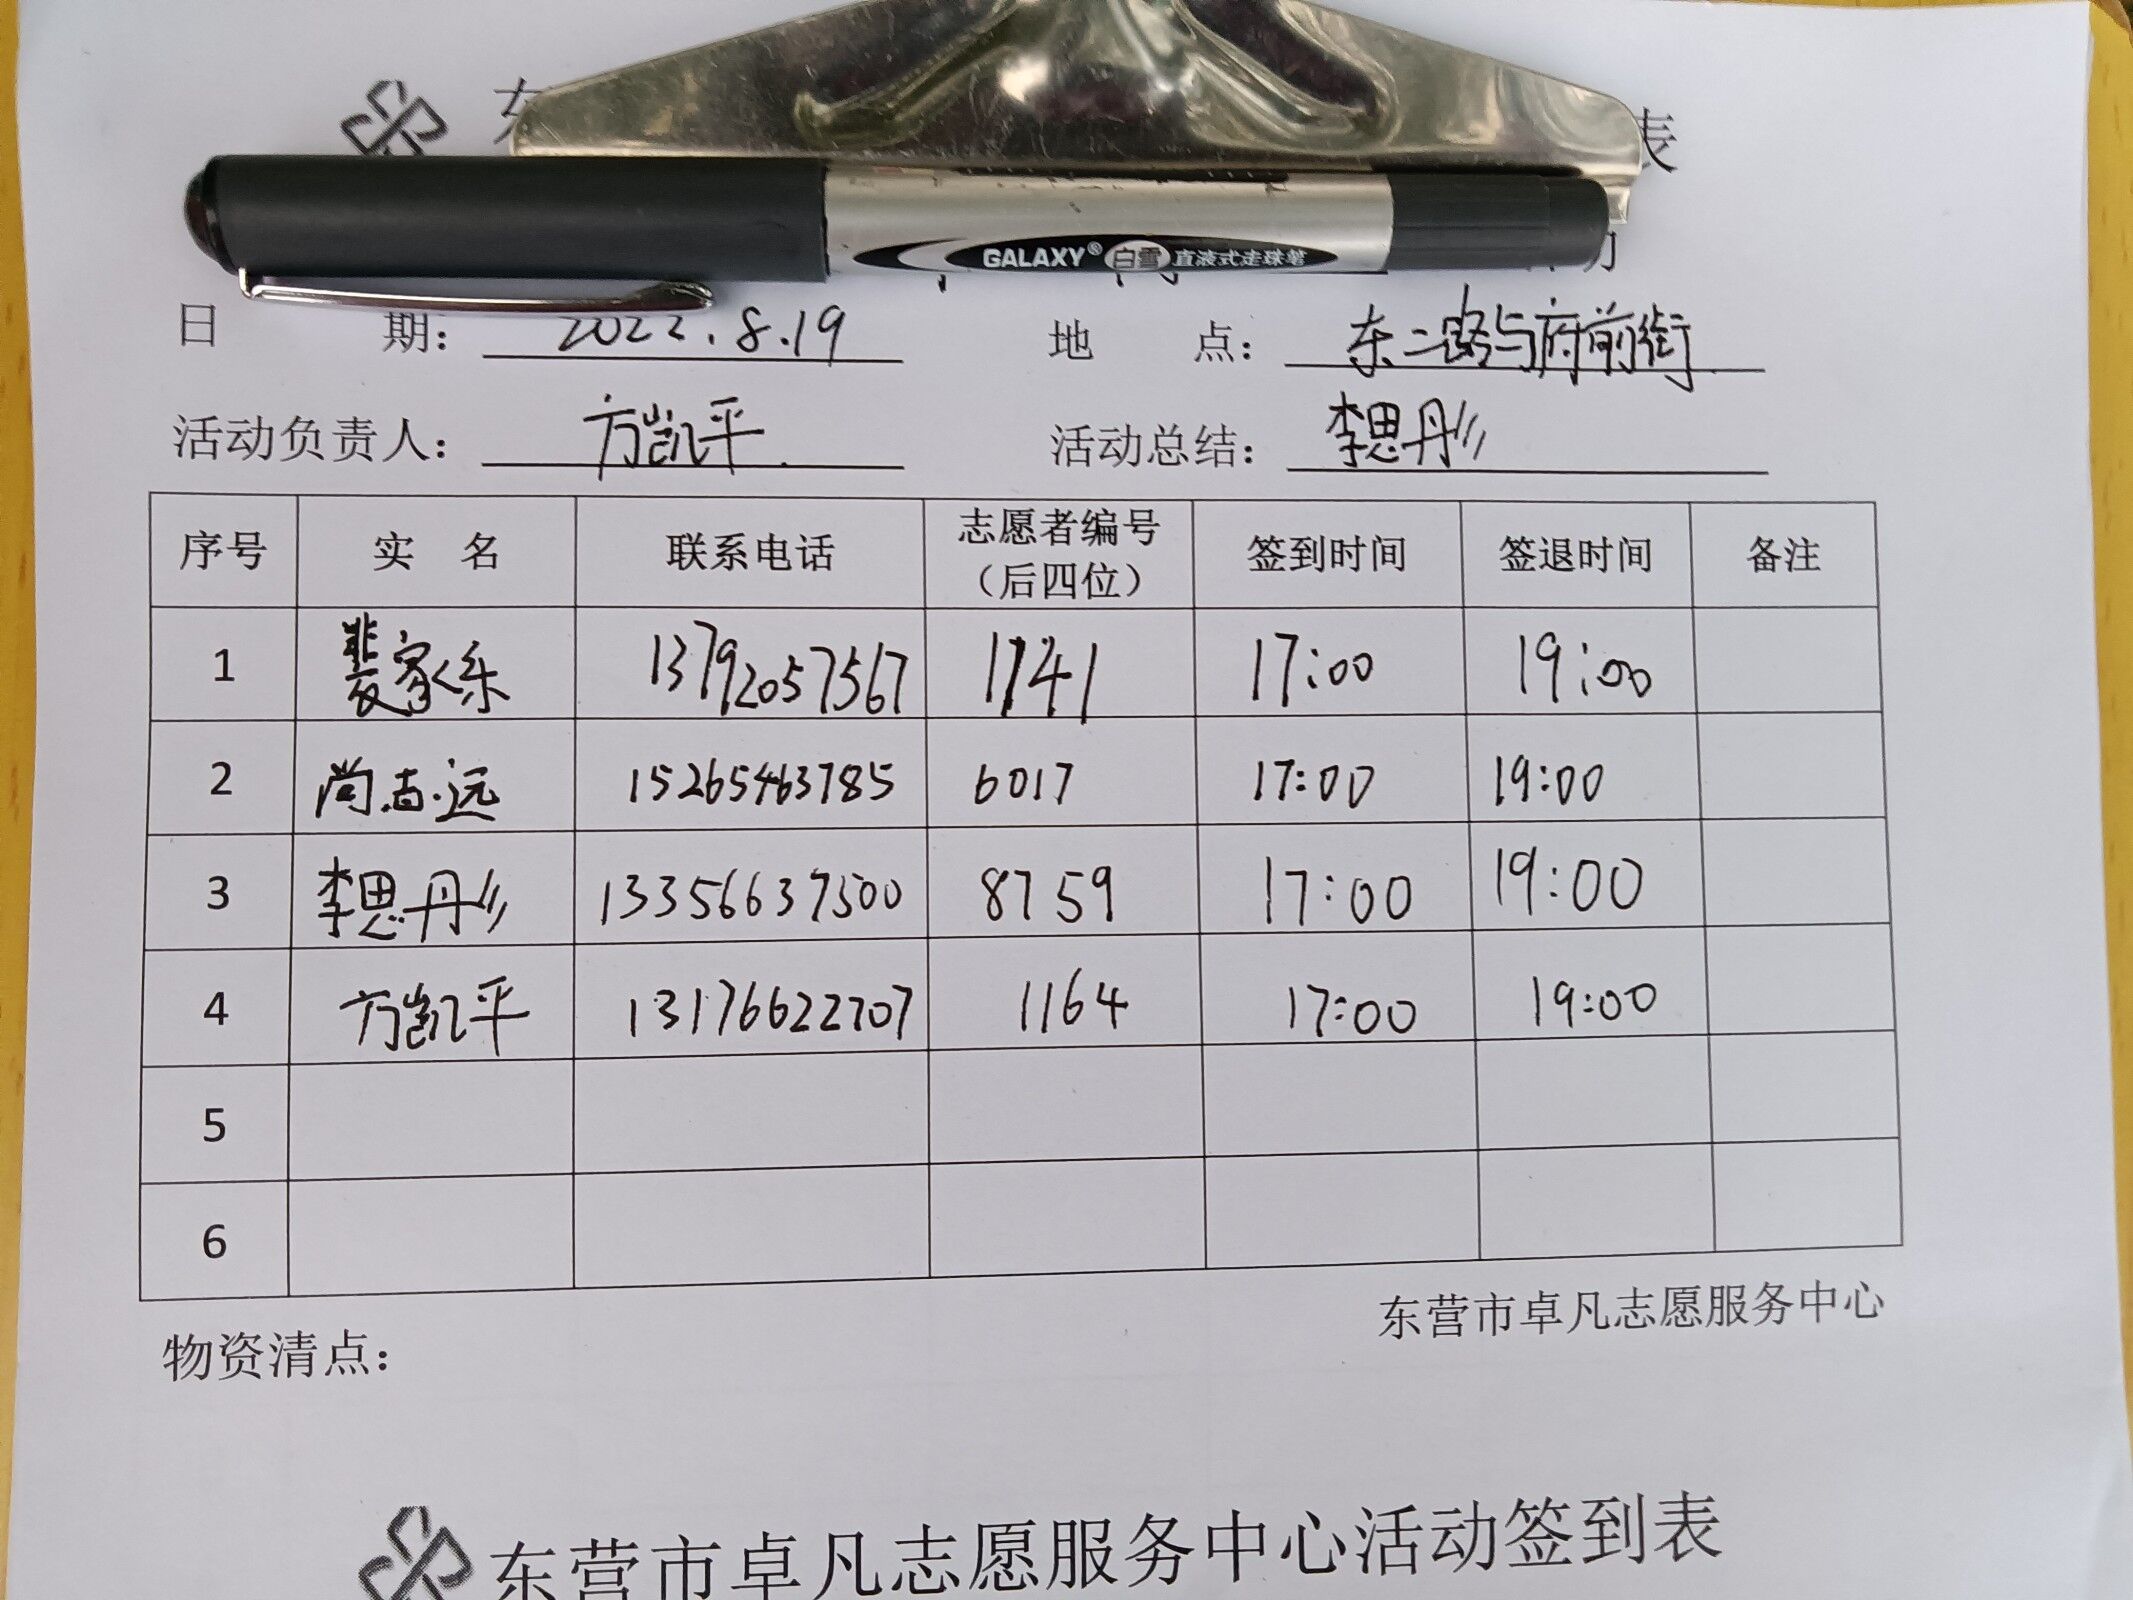 表
GALAXY® 白雪 直液式走珠笔
日 期： 2022.8.19 地 点： 东二路与府前街
活动负责人： 方凯平 活动总结： 李思彤
序号 实 名 联系电话 志愿者编号（后四位） 签到时间 签退时间 备注
1 裴家乐 13792057567 1741 17:00 19:00
2 尚志远 15265463785 6017 17:00 19:00
3 李思彤 13356637500 8759 17:00 19:00
4 方凯平 13176622707 1164 17:00 19:00
5
6
东营市卓凡志愿服务中心
物资清点：
东营市卓凡志愿服务中心活动签到表